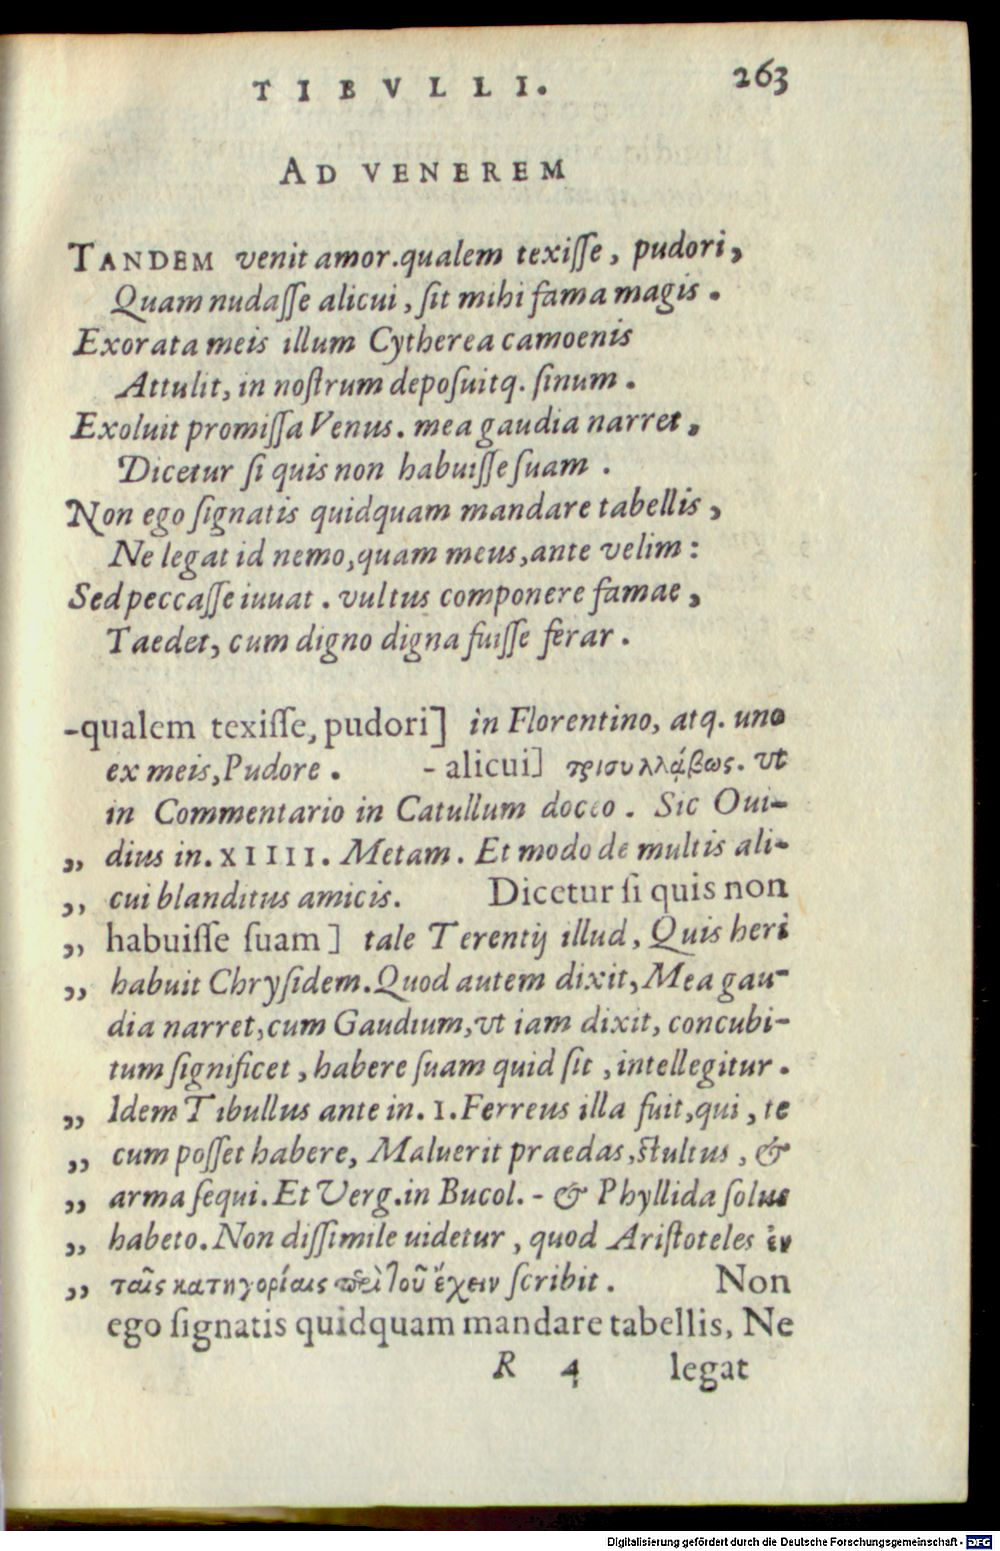 TIBVLLI. 263
AD VENEREM
TANDEM venit amor. qualem texisse, pudori,
Quam nudasse alicui, sit mihi fama magis.
Exorata meis illum Cytherea camoenis
Attulit, in nostrum deposuitq. sinum.
Exoluit promissa Venus. mea gaudia narret,
Dicetur si quis non habuisse suam.
Non ego signatis quidquam mandare tabellis,
Ne legat id nemo, quam meus, ante velim:
Sed peccasse iuuat. vultus componere famae,
Taedet, cum digno digna fuisse ferar.
-qualem texisse, pudori] in Florentino, atq. uno
ex meis, Pudore. - alicui] τρισυλλάβως. vt
in Commentario in Catullum doceo. Sic Oui-
„ dius in. XIIII. Metam. Et modo de multis ali-
„ cui blanditus amicis. Dicetur si quis non
„ habuisse suam] tale Terentij illud, Quis heri
„ habuit Chrysidem. Quod autem dixit, Mea gau-
dia narret, cum Gaudium, vt iam dixit, concubi-
tum significet, habere suam quid sit, intellegitur.
„ Idem Tibullus ante in. I. Ferreus illa fuit, qui, te
„ cum posset habere, Maluerit praedas, stultus, &
„ arma sequi. Et Verg. in Bucol. - & Phyllida solus
„ habeto. Non dissimile uidetur, quod Aristoteles ἐν
„ ταῖς κατηγορίαις περὶ τοῦ ἔχειν scribit. Non
ego signatis quidquam mandare tabellis, Ne
R 4 legat
Digitalisierung gefördert durch die Deutsche Forschungsgemeinschaft - DFG